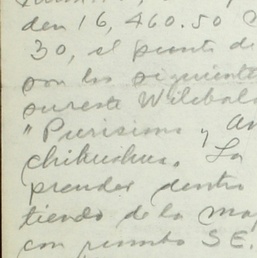 den 16,460.50
30, el punto de
son los siguiente
sureste Wilebal
"Purisima y An
chihuahua. La
prender dentro
tiendo de la ma
con rumbo S E.